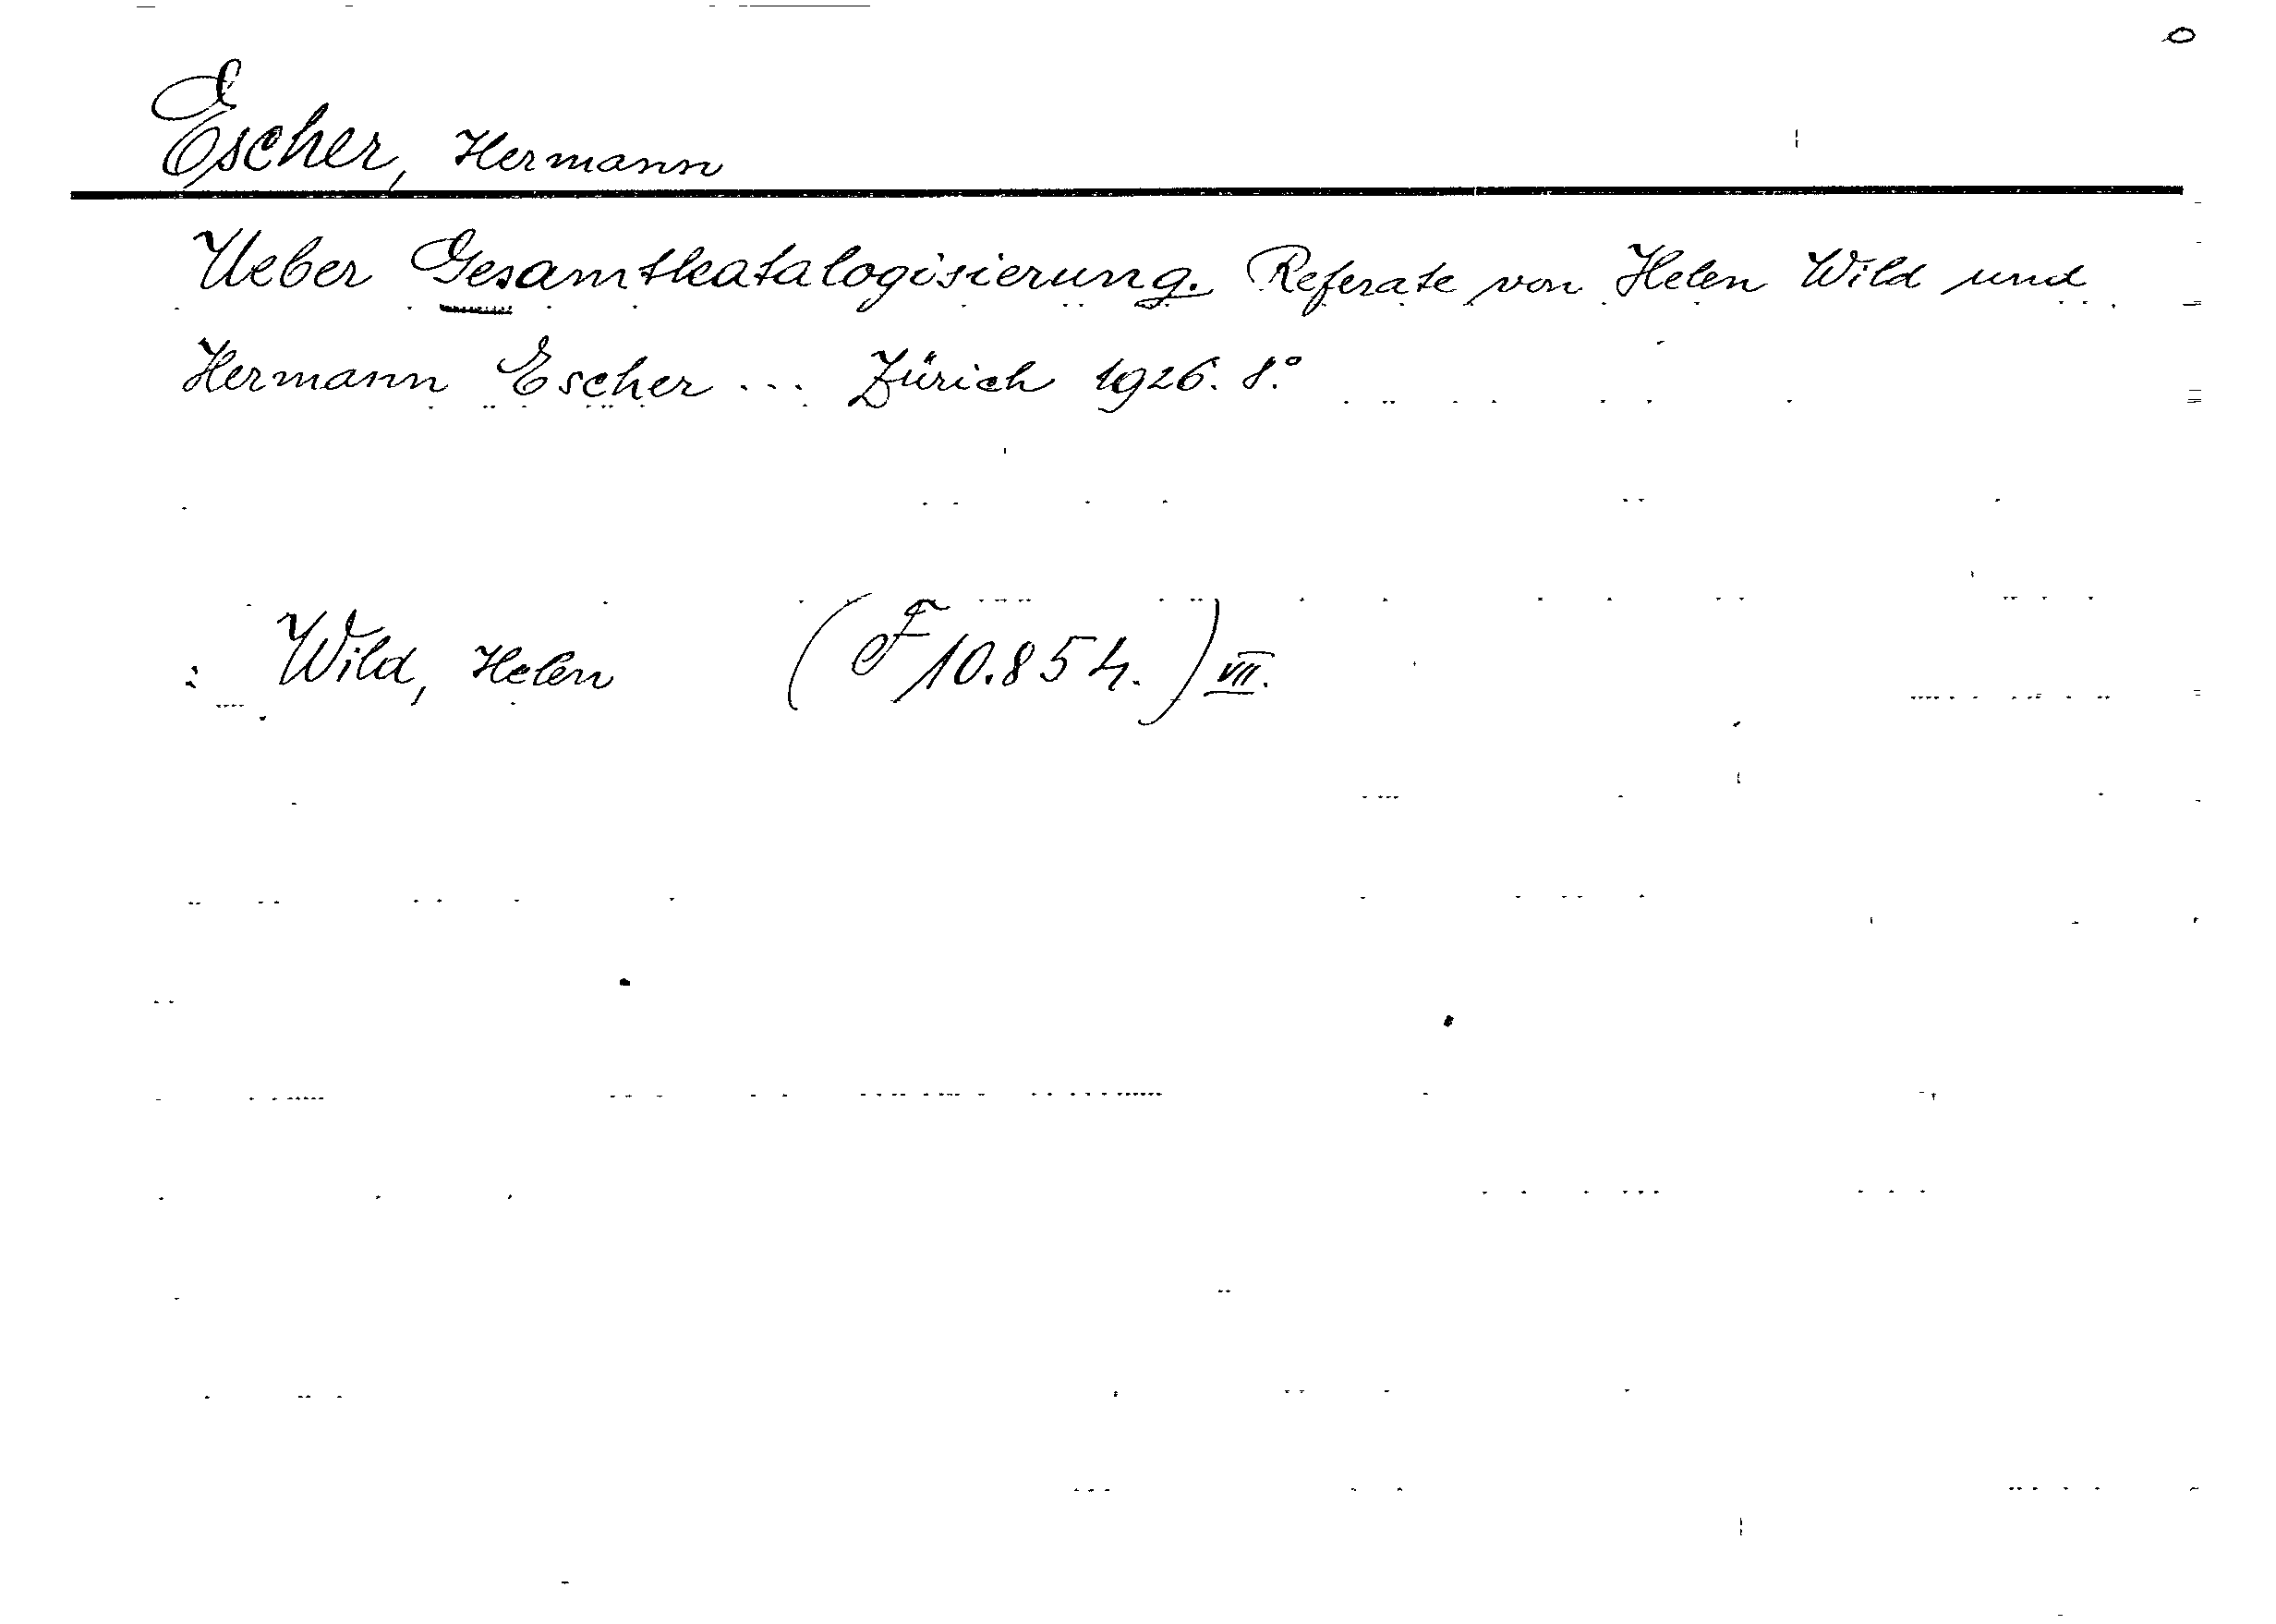 Escher, Hermann
Ueber Gesamtkatalogisierung. Referate von Helen Wild und
Hermann Escher ... Zürich 1926. 8.°
: Wild, Helen (F 10.854.) VII.